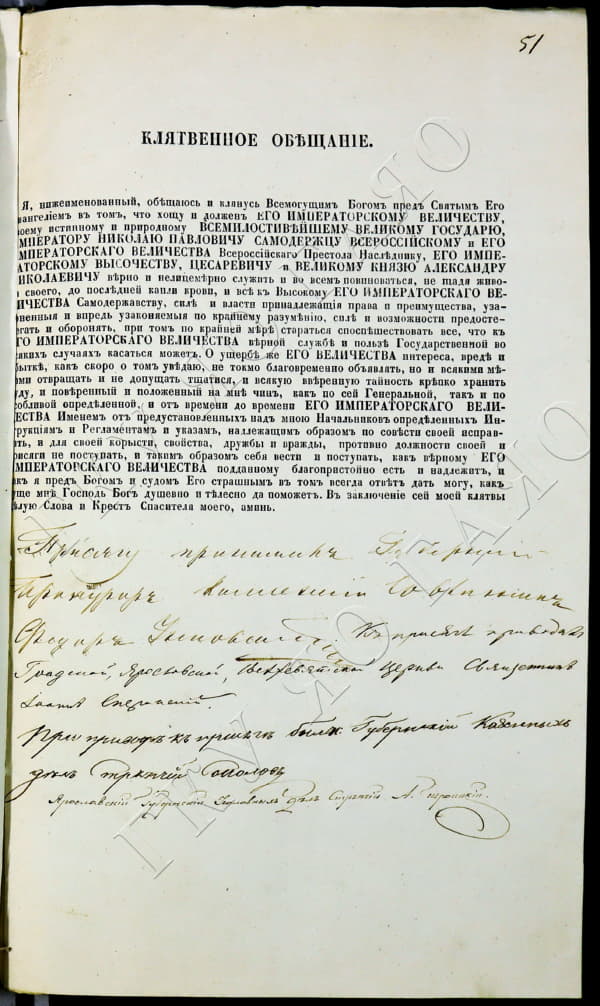 51
КЛЯТВЕННОЕ ОБѢЩАНІЕ.
Я, нижеименованный, обѣщаюсь и клянусь Всемогущимъ Богомъ предъ Святымъ Его
вангеліемъ въ томъ, что хощу и долженъ ЕГО ИМПЕРАТОРСКОМУ ВЕЛИЧЕСТВУ,
оему истинному и природному ВСЕМИЛОСТИВѢЙШЕМУ ВЕЛИКОМУ ГОСУДАРЮ,
МПЕРАТОРУ НИКОЛАЮ ПАВЛОВИЧУ САМОДЕРЖЦУ ВСЕРОССІЙСКОМУ и ЕГО
МПЕРАТОРСКАГО ВЕЛИЧЕСТВА Всероссійскаго Престола Наслѣднику, ЕГО ИМПЕ-
АТОРСКОМУ ВЫСОЧЕСТВУ, ЦЕСАРЕВИЧУ и ВЕЛИКОМУ КНЯЗЮ АЛЕКСАНДРУ
ИКОЛАЕВИЧУ вѣрно и нелицемѣрно служить и во всемъ повиноваться, не щадя живо-
а своего, до послѣдней капли крови, и всѣ къ Высокому ЕГО ИМПЕРАТОРСКАГО ВЕ-
ИЧЕСТВА Самодержавству, силѣ и власти принадлежащія права и преимущества, уза-
ненныя и впредь узаконяемыя по крайнему разумѣнію, силѣ и возможности предосте-
егать и оборонять, при томъ по крайней мѣрѣ стараться споспѣшествовать все, что къ
ГО ИМПЕРАТОРСКАГО ВЕЛИЧЕСТВА вѣрной службѣ и пользѣ Государственной во
яких случаяхъ касаться можетъ. О ущербѣ же ЕГО ВЕЛИЧЕСТВА интереса, вредѣ и
быткѣ, какъ скоро о томъ увѣдаю, не токмо благовременно объявлять, но и всякими мѣ-
ми отвращать и не допущать тщатися, и всякую ввѣренную тайность крѣпко хранить
уду, и повѣренный и положенный на мнѣ чинъ, какъ по сей Генеральной, такъ и по
собливой опредѣленной, и отъ времени до времени ЕГО ИМПЕРАТОРСКАГО ВЕЛИ-
ЕСТВА Именемъ отъ предуставленныхъ надъ мною Начальниковъ опредѣленныхъ Ин-
рукціямъ и Регламентамъ и указамъ, надлежащимъ образомъ по совѣсти своей исправ-
ять, и для своей корысти, свойства, дружбы и вражды, противно должности своей и
рисяги не поступать, и такимъ образомъ себя вести и поступать, какъ вѣрному ЕГО
МПЕРАТОРСКАГО ВЕЛИЧЕСТВА подданному благопристойно есть и надлежитъ, и
акъ я предъ Богомъ и судомъ Его страшнымъ въ томъ всегда отвѣтъ дать могу, какъ
уще мнѣ Господь Богъ душевно и тѣлесно да поможетъ. Въ заключеніе сей моей клятвы
ѣлую Слова и Крестъ Спасителя моего, аминь.
Присягу принималъ Губернскій
Прокуроръ Коллежскій Совѣтникъ
Ѳедоръ Къ присягѣ приводилъ
Градской, Ярославской, церкви Священникъ
Іоаннъ
При приводѣ къ присягѣ былъ Губернскій Казенныхъ
дѣлъ Стряпчій
Ярославскій Губернскій Уголовныхъ Дѣлъ Стряпчій А.
ЯРОСЛАВСКОЙ